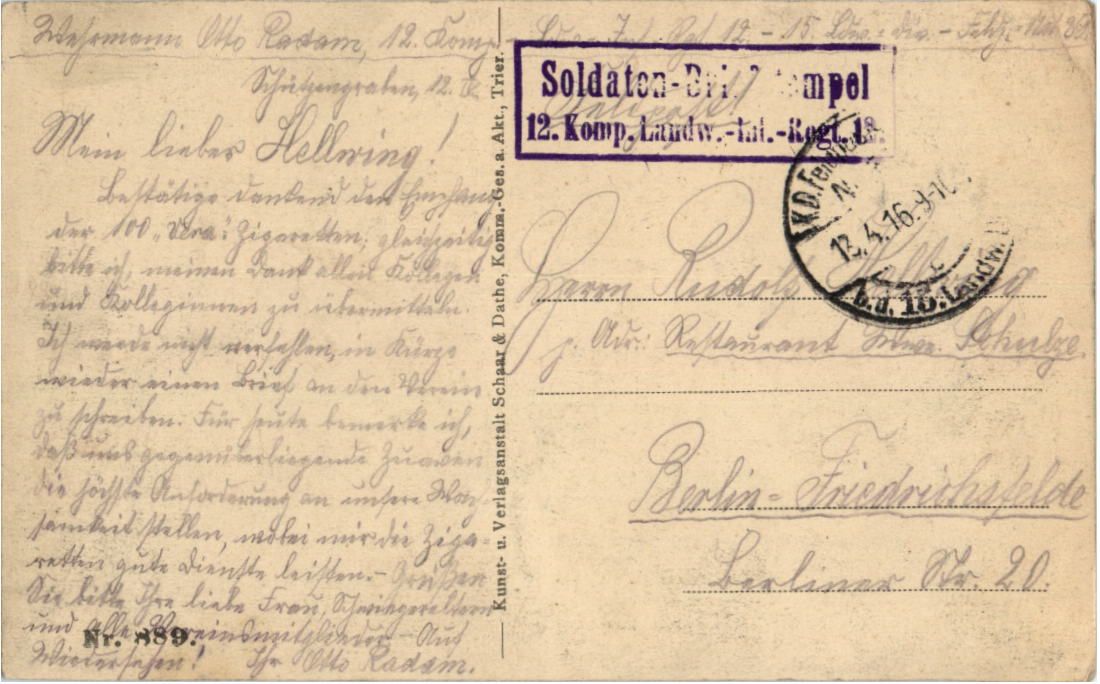 Wehrmann Otto Radam, 12. Komp. Ldw.-Inf. Rgt. 12. - 15. Ldw.-Div. - Feldp.
Schützengraben, 12. 4.
Mein lieber Hellwing!
Bestätige dankend den Empfang
der 100 „ Zigaretten, gleichzeitig
bitte ich, meinen Dank allen Kollegen
und Kolleginnen zu übermitteln.
Ich werde nicht verfehlen, in Kürze
wieder einen Brief an den Verein
zu schreiben. Für heute bemerke ich,
daß uns gegenüberliegende Zuaven
die höchste Anforderung an unsere Wach-
samkeit stellen, wobei mir die Ziga-
retten gute Dienste leisten. - Grüßen
Sie bitte Ihre liebe Frau, Schwiegereltern
und alle Vereinsmitglieder. Auf
Wiedersehen! Ihr Otto Radam.
Nr. 889.
Kunst- u. Verlagsanstalt Schaar & Dathe, Komm.-Ges. a. Akt., Trier.
Soldaten-Brief-Stempel
12. Komp. Landw.-Inf.-Regt. 12.
Feldpost!
K.D. Feldpost
13.4.16. 9-10
b.d. 15. Landw. D
Herrn Rudolf Hellwing
p. Adr: Restaurant Wwe. Schulze
Berlin-Friedrichsfelde
Berliner Str. 20.